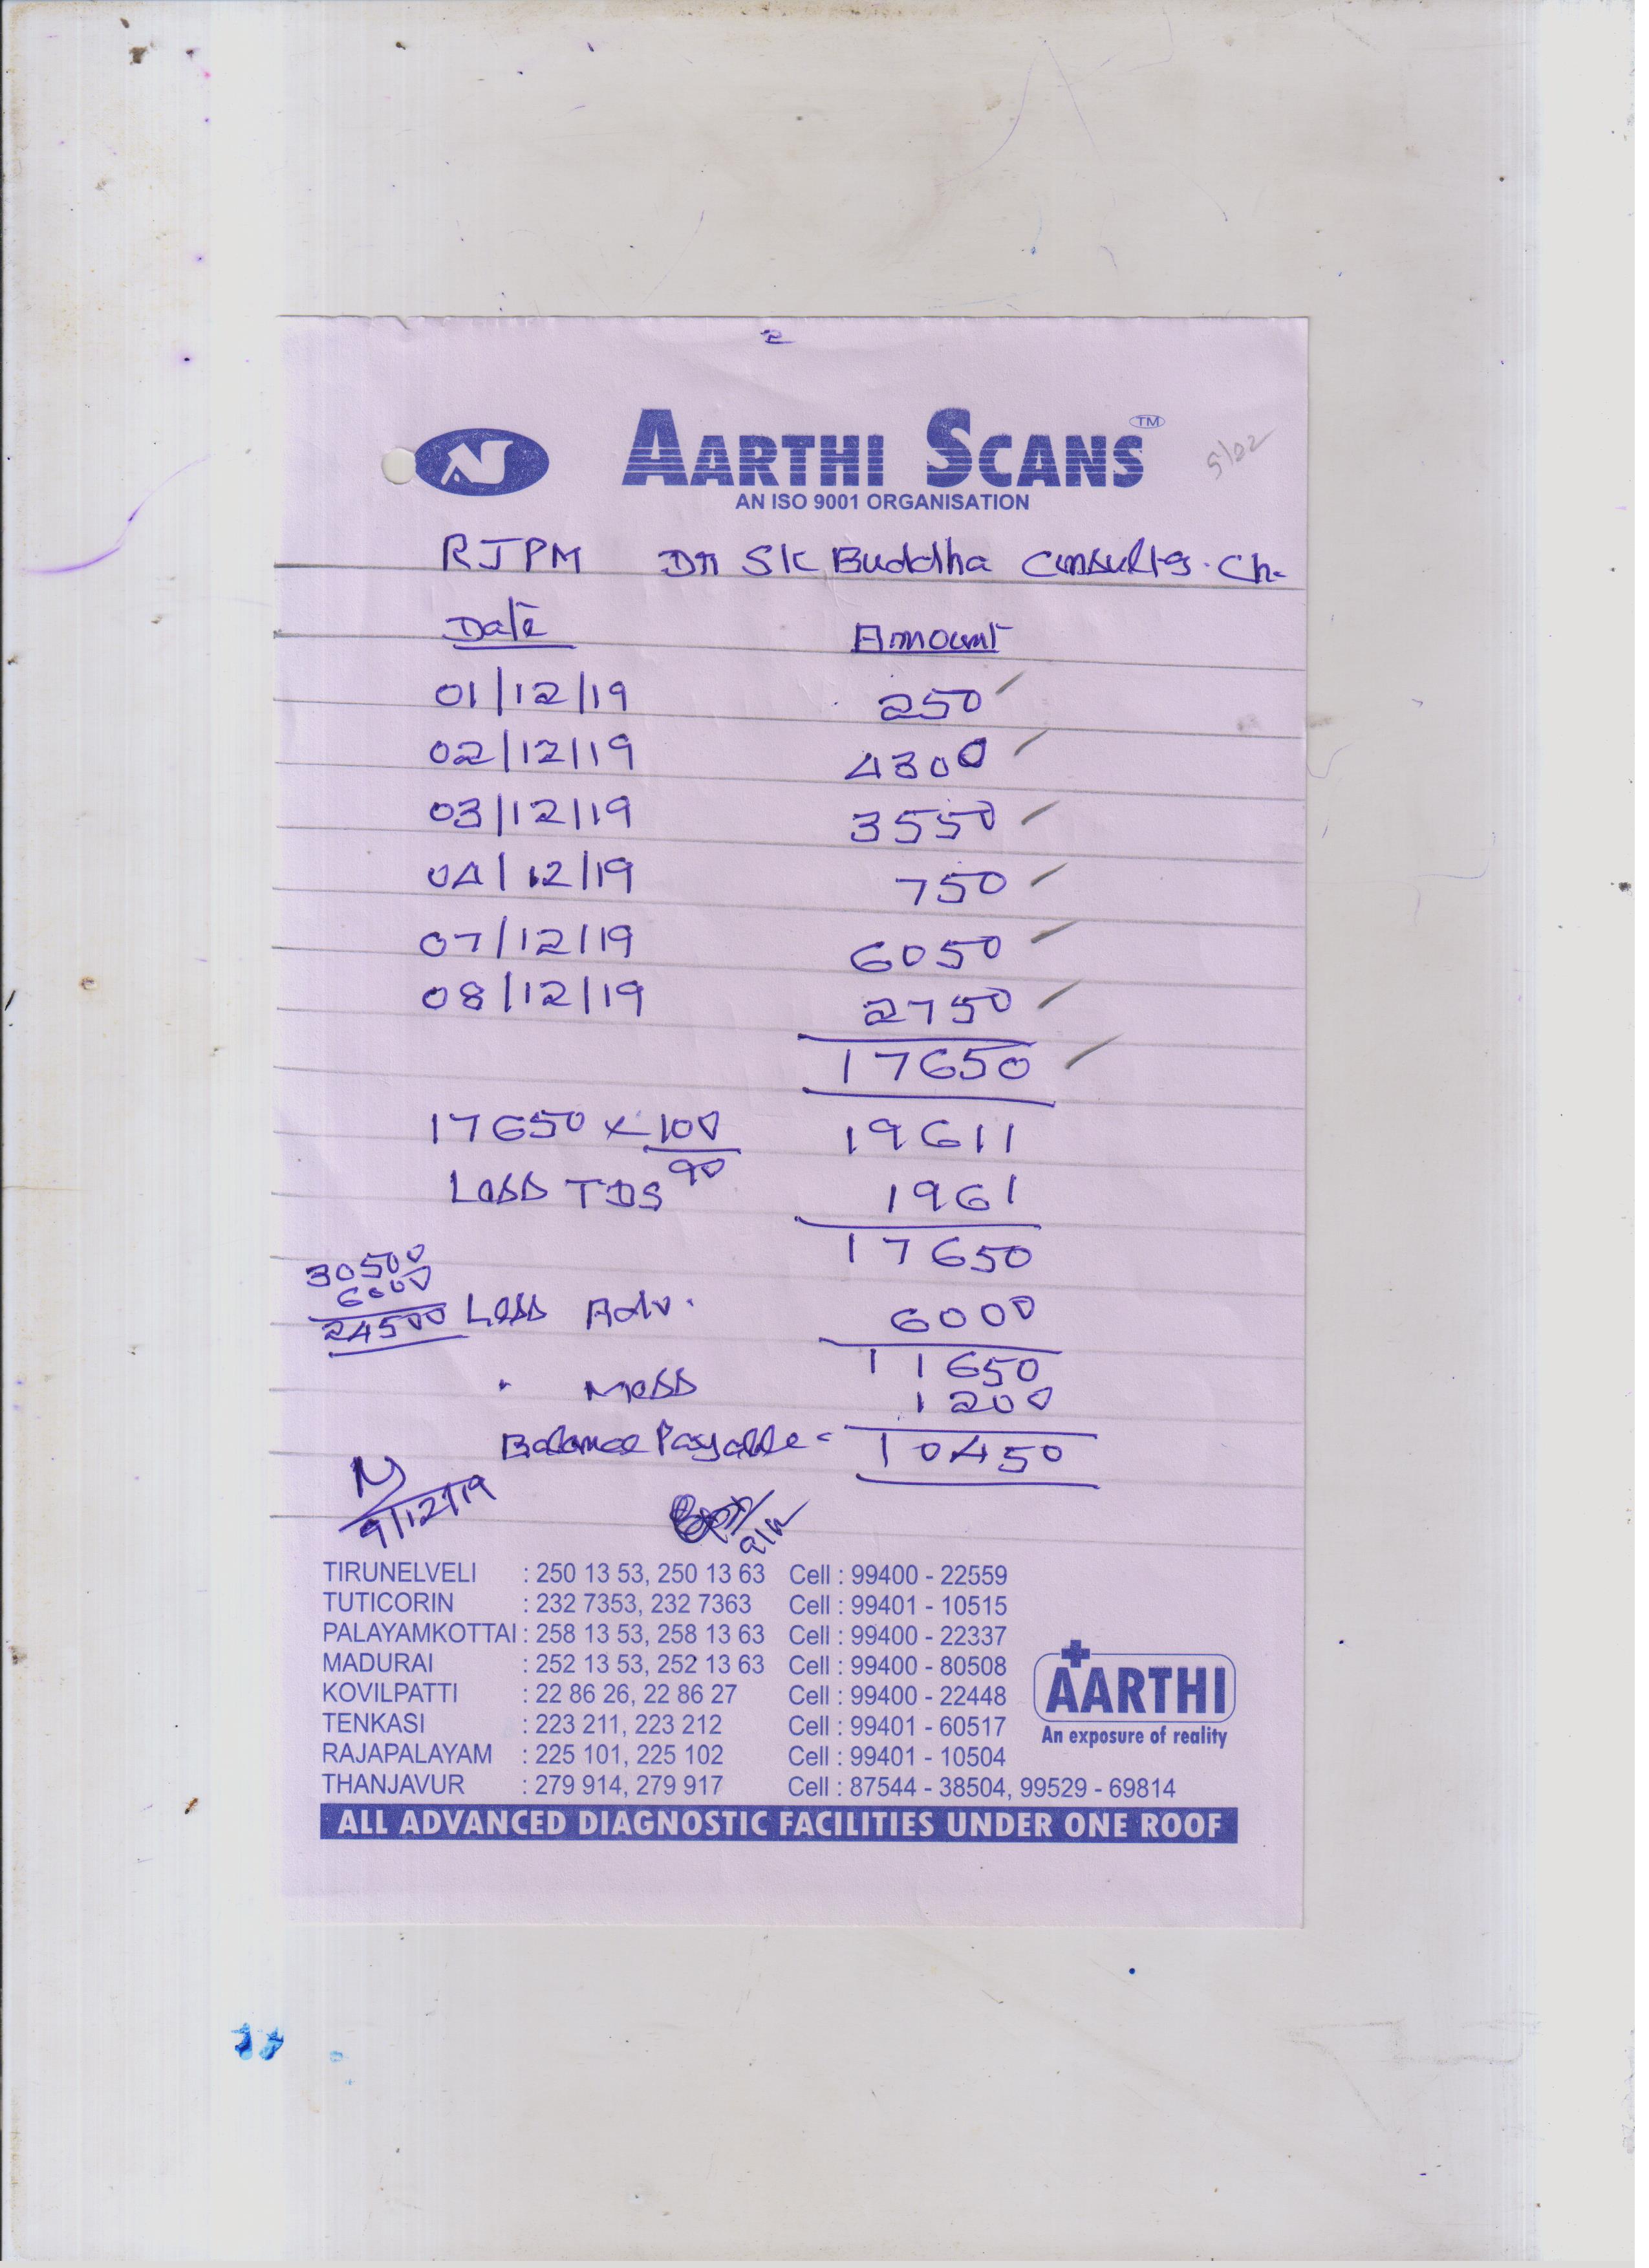 2
AARTHI SCANS TM
AN ISO 9001 ORGANISATION
5/22
RJPM Dr SK Buddha Consultg. Ch.
Date Amount
01/12/19 250
02/12/19 4300
03/12/19 3550
04/12/19 750
07/12/19 6050
08/12/19 2750
17650
17650 x 100/90 19611
Less TDS 1961
17650
30500
6000
24500 Less Adv. 6000
11650
" Mess 1200
Balance Payable = 10450
9/12/19
9/12
TIRUNELVELI : 250 13 53, 250 13 63 Cell : 99400 - 22559
TUTICORIN : 232 7353, 232 7363 Cell : 99401 - 10515
PALAYAMKOTTAI : 258 13 53, 258 13 63 Cell : 99400 - 22337
MADURAI : 252 13 53, 252 13 63 Cell : 99400 - 80508
KOVILPATTI : 22 86 26, 22 86 27 Cell : 99400 - 22448
TENKASI : 223 211, 223 212 Cell : 99401 - 60517
RAJAPALAYAM : 225 101, 225 102 Cell : 99401 - 10504
THANJAVUR : 279 914, 279 917 Cell : 87544 - 38504, 99529 - 69814
AARTHI
An exposure of reality
ALL ADVANCED DIAGNOSTIC FACILITIES UNDER ONE ROOF